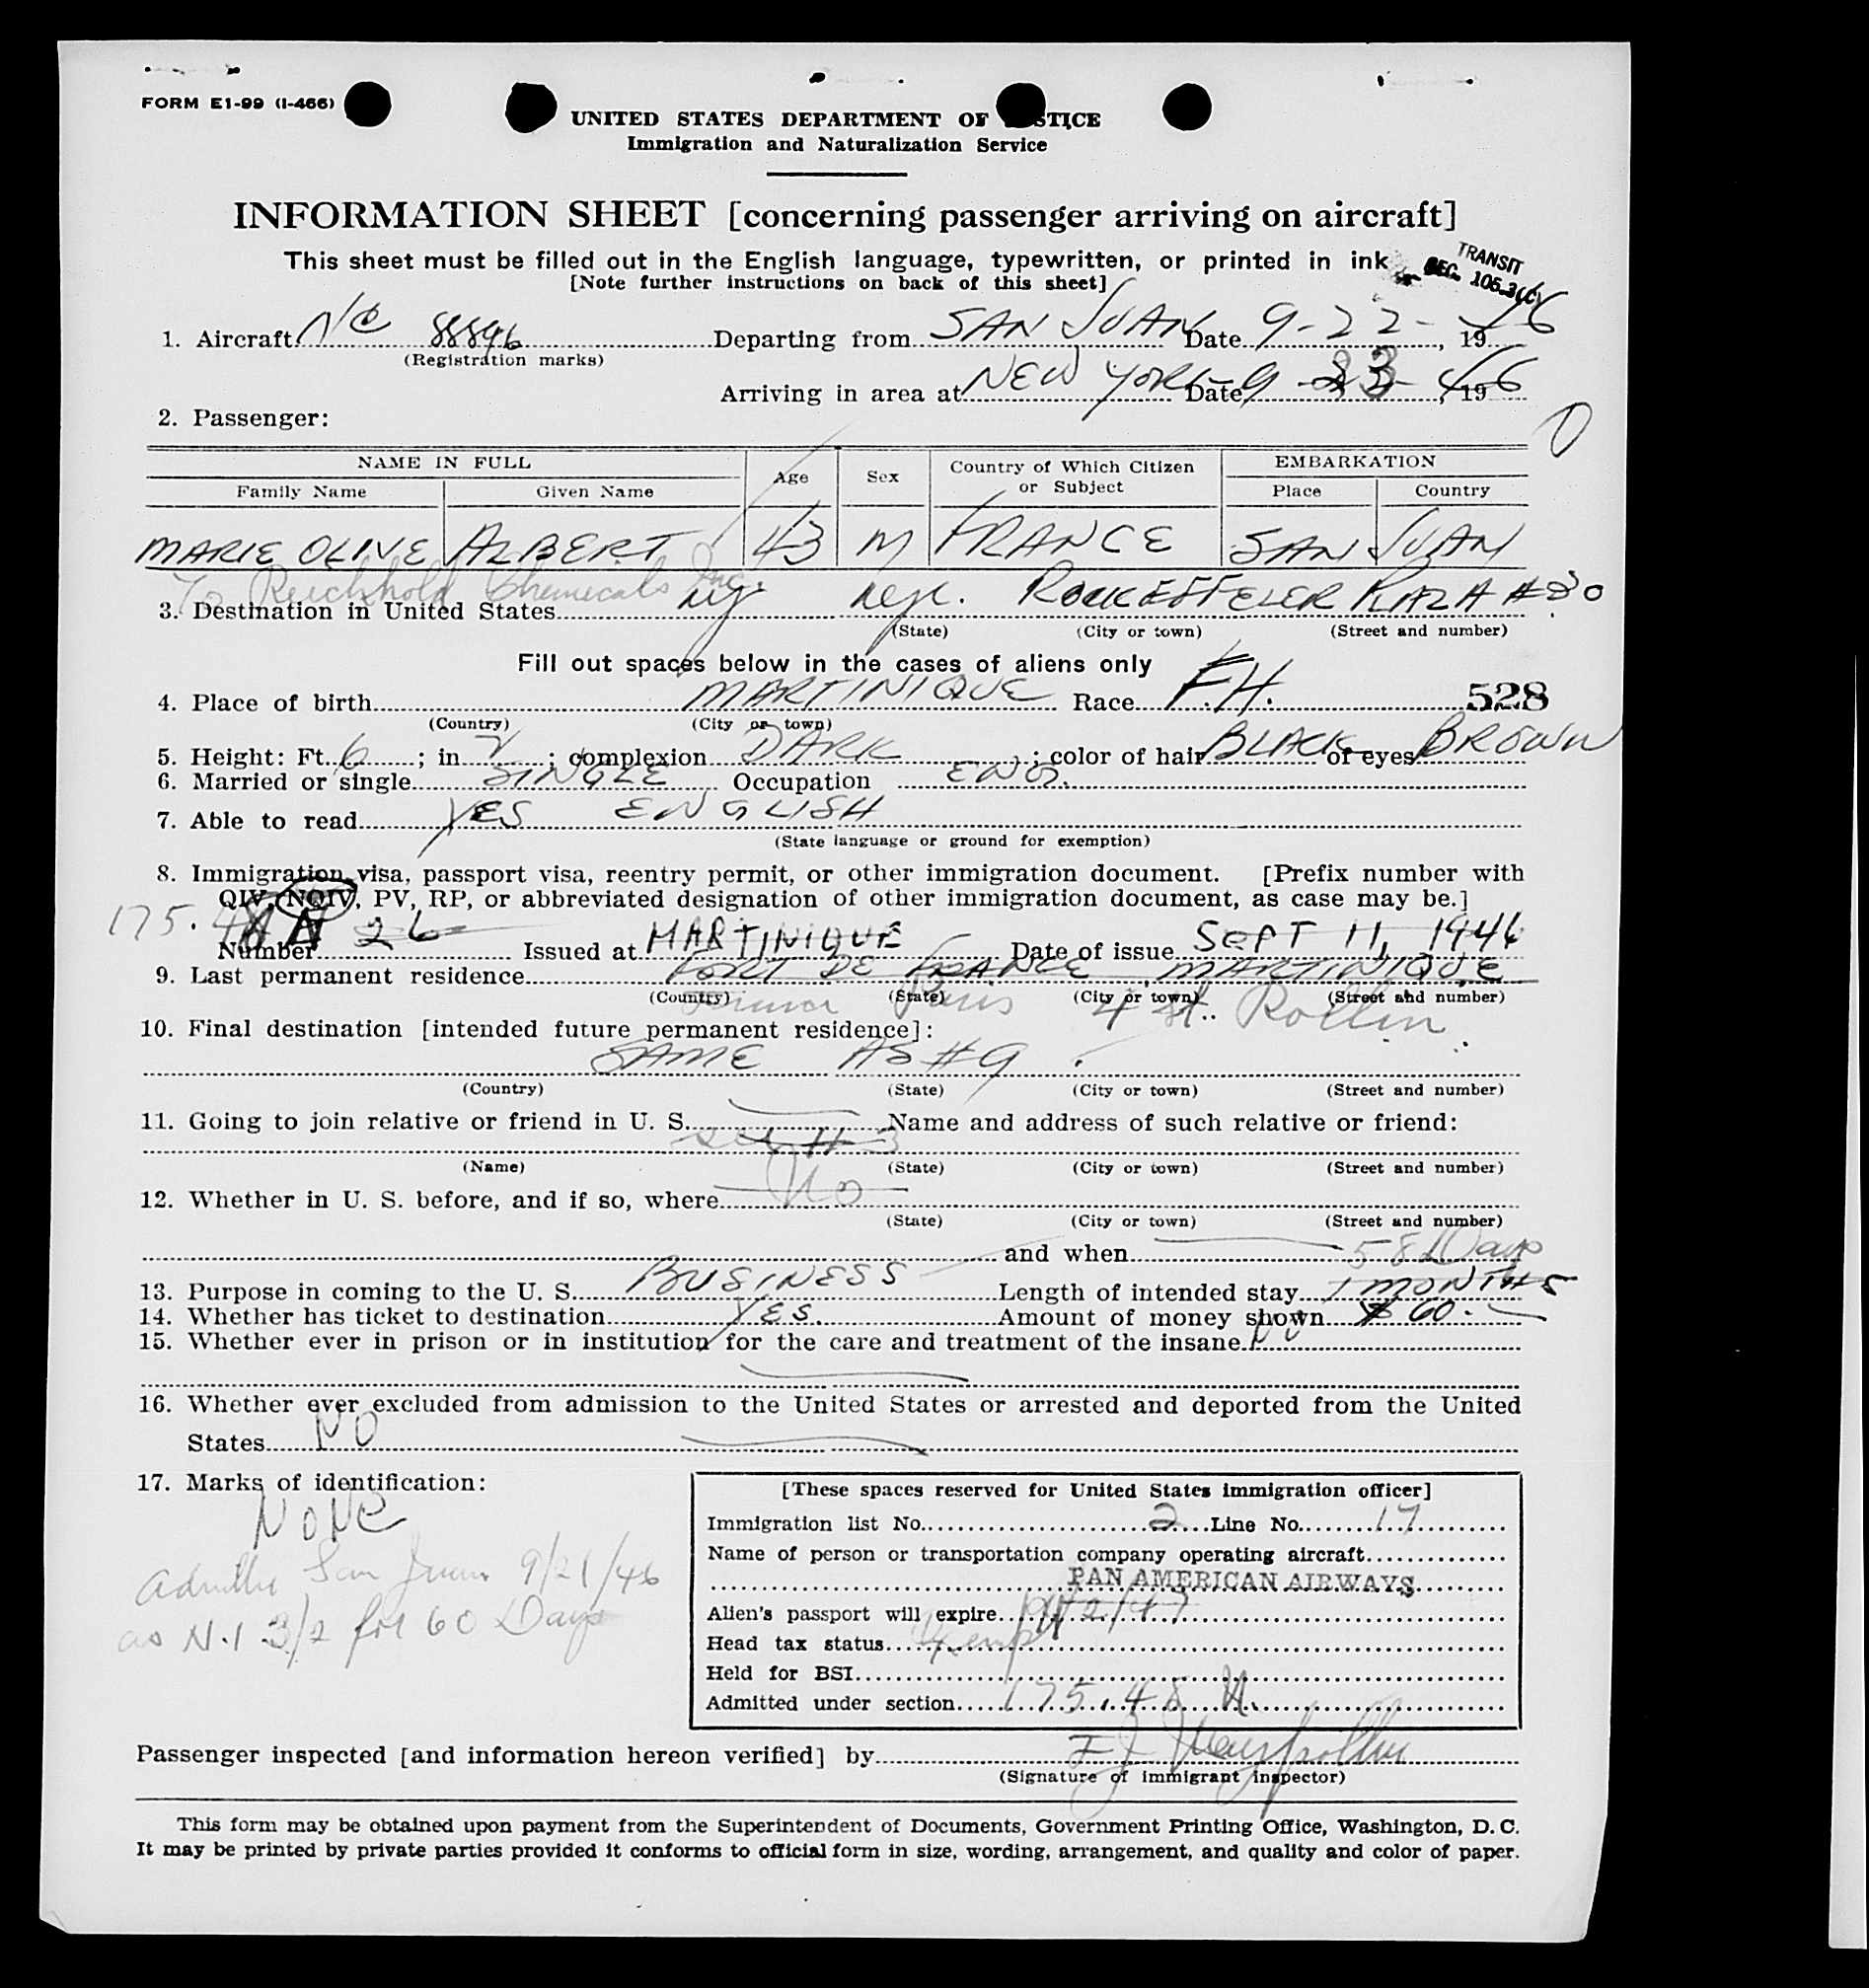 FORM E1-99 (I-466)
UNITED STATES DEPARTMENT OF STICE
Immigration and Naturalization Service
INFORMATION SHEET [concerning passenger arriving on aircraft]
This sheet must be filled out in the English language, typewritten, or printed in ink
[Note further instructions on back of this sheet]
TRANSIT
SEC. 105.3(C)
1. Aircraft NC 88896 Departing from SAN JUAN Date 9-22-, 1946
(Registration marks)
Arriving in area at NEW YORK Date 9-23-, 1946
2. Passenger:
0
NAME IN FULL Age Sex Country of Which Citizen or Subject EMBARKATION
Family Name Given Name Place Country
MARIE OLIVE ALBERT 43 M FRANCE SAN JUAN
% Reichhold Chemicals Inc.
3. Destination in United States NY NYC. ROCKEFFELER PLAZA #30
(State) (City or town) (Street and number)
Fill out spaces below in the cases of aliens only
4. Place of birth MARTINIQUE Race F.H. 528
(Country) (City or town)
5. Height: Ft. 6; in 2; complexion DARK; color of hair BLACK of eyes BROWN
6. Married or single SINGLE Occupation ENG.
7. Able to read YES ENGLISH
(State language or ground for exemption)
8. Immigration visa, passport visa, reentry permit, or other immigration document. [Prefix number with
QIV, NQIV, PV, RP, or abbreviated designation of other immigration document, as case may be.]
175.48
Number 26 Issued at MARTINIQUE Date of issue SEPT 11, 1946
9. Last permanent residence FORT DE FRANCE, MARTINIQUE
(Country) (State) (City or town) (Street and number)
France Paris 4 st. Rollin
10. Final destination [intended future permanent residence]:
SAME AS #9
(Country) (State) (City or town) (Street and number)
11. Going to join relative or friend in U. S. Name and address of such relative or friend:
See #3
(Name) (State) (City or town) (Street and number)
12. Whether in U. S. before, and if so, where No
(State) (City or town) (Street and number)
and when
58 Days
13. Purpose in coming to the U. S. BUSINESS Length of intended stay 1 MONTHS
14. Whether has ticket to destination YES. Amount of money shown $60.
15. Whether ever in prison or in institution for the care and treatment of the insane No
16. Whether ever excluded from admission to the United States or arrested and deported from the United
States NO
17. Marks of identification:
NONE
Admitted San Juan 9/21/46
as N.I 3/2 for 60 Days
[These spaces reserved for United States immigration officer]
Immigration list No. 2 Line No. 17
Name of person or transportation company operating aircraft
PAN AMERICAN AIRWAYS
Alien's passport will expire
Head tax status Exempt
Held for BSI
Admitted under section 175.48
Passenger inspected [and information hereon verified] by
(Signature of immigrant inspector)
This form may be obtained upon payment from the Superintendent of Documents, Government Printing Office, Washington, D. C.
It may be printed by private parties provided it conforms to official form in size, wording, arrangement, and quality and color of paper.